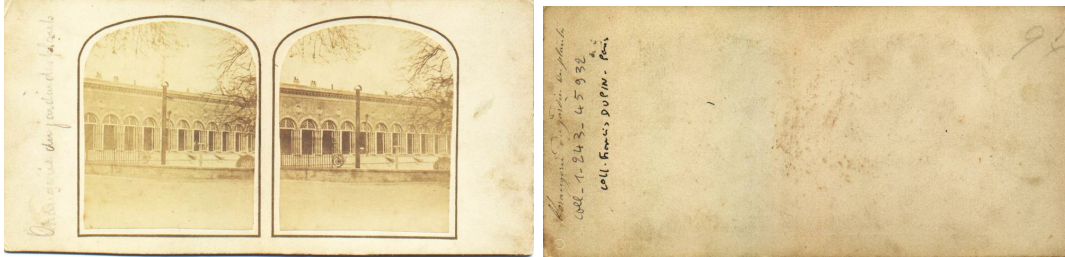 Orangerie du jardin des plantes
Orangerie du jardin des plantes
Coll-1-243-45932
Coll-Francis DUPIN-Paris